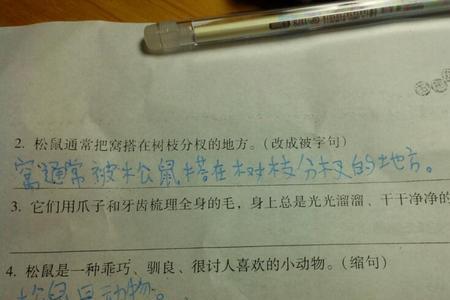 2. 松鼠通常把窝搭在树枝分杈的地方。(改成被字句)
窝通常被松鼠搭在树枝分杈的地方。
3. 它们用爪子和牙齿梳理全身的毛，身上总是光光溜溜、干干净净的
4. 松鼠是一种乖巧、驯良、很讨人喜欢的小动物。(缩句)
松鼠是动物。